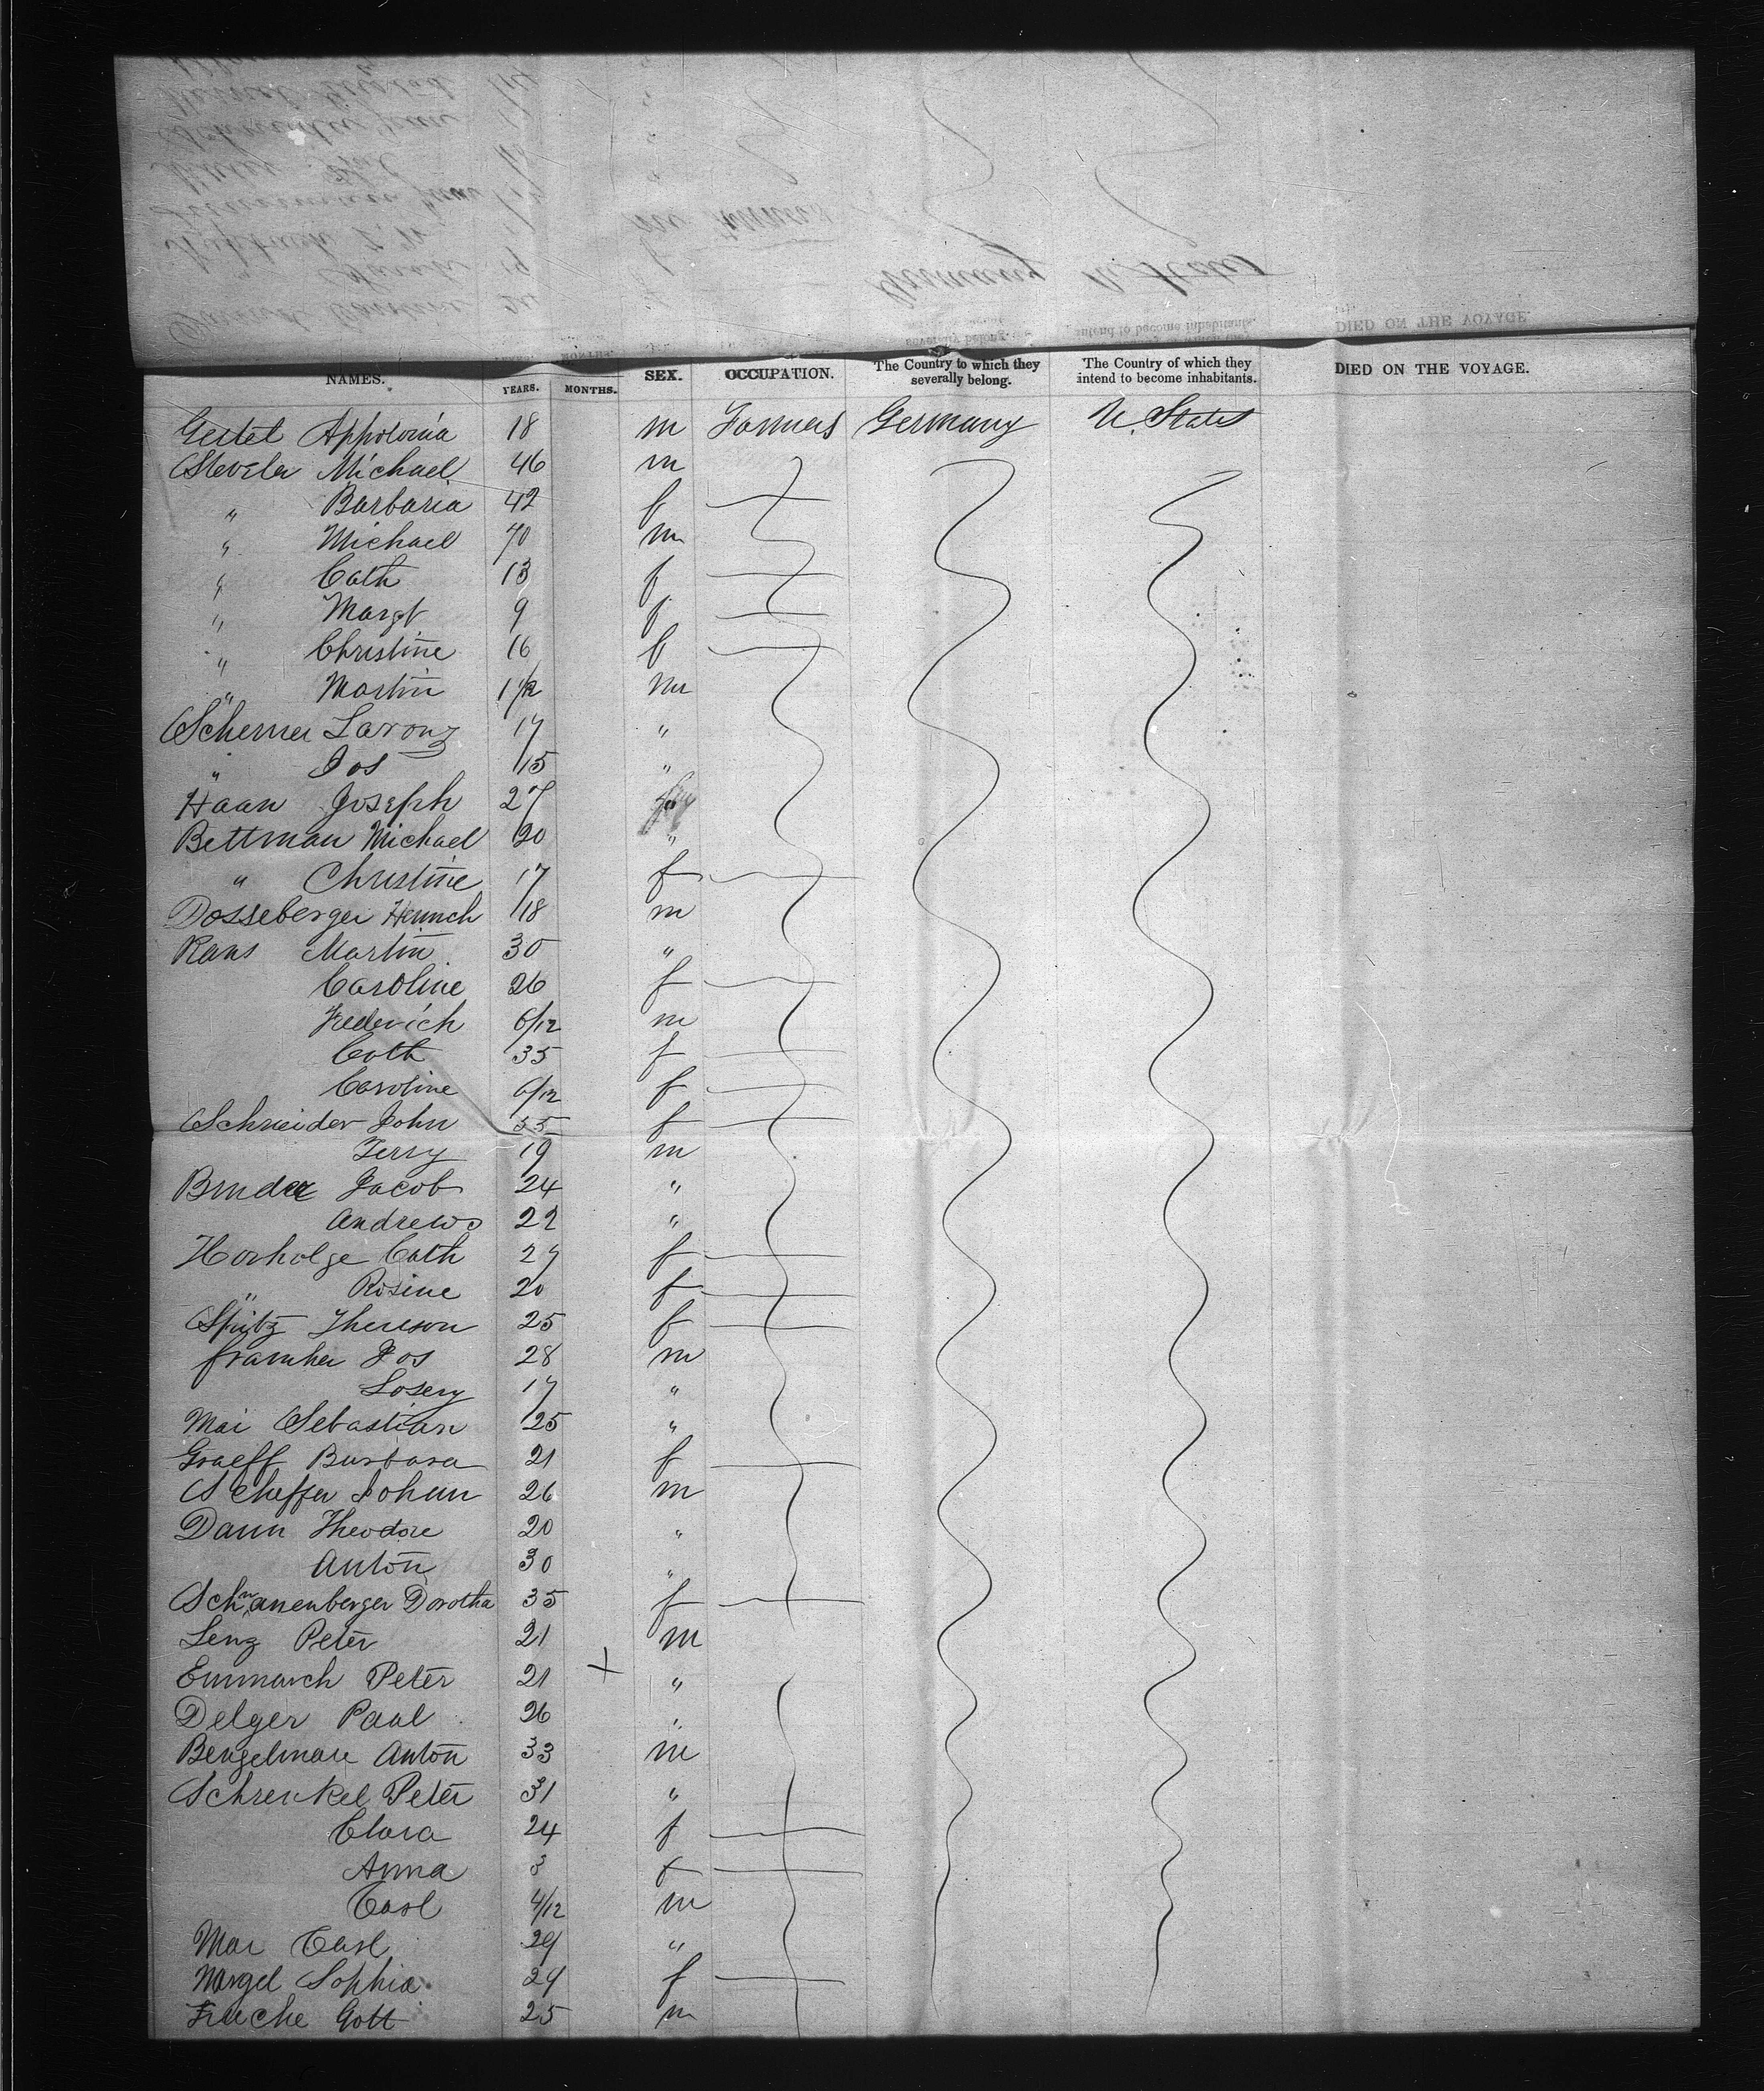 NAMES. YEARS. MONTHS. SEX. OCCUPATION. The Country to which they severally belong. The Country of which they intend to become inhabitants. DIED ON THE VOYAGE.
Gestet Appolonia 18 m Farmers Germany U. States
Michael 46 m
" Barbaria 42 f
" Michael 40 m
" Cath 13 f
" Margt 9 f
" Christine 16 f
" Martin 1 1/2 m
Scherrer Laronz 17 "
" Jos 15 "
Haan Joseph 27
Bettman Michael 20 "
" Christine 17 f
Dosseberger Heinrich 18 m
Rans Martin 30 "
Caroline 26 f
Frederich 6/12 m
Cath 35 f
Caroline 6/12 f
Schneider John 35 f
Ferry 19 m
Bruder Jacob 24 "
Andrews 22 "
Horholge Cath 27 f
" Rosine 20 f
Spitz Thereson 25 f
Framher Jos 28 m
Losery 17 "
Mai Sebastian 25 "
Graeff Barbara 21 f
Scheffer Johann 26 m
Dann Theodore 20 "
Anton 30 "
Schwanenberger Dorotha 35 f
Lenz Peter 21 m
Emmarch Peter 21 + "
Delger Paul 26 "
Bengelmare Anton 33 m
Schrenkel Peter 31 "
Clara 24 f
Anna 3 f
Carl 4/12 m
Mai Carl 29 "
Nargel Sophia 29 f
Frueche Gott 25 m